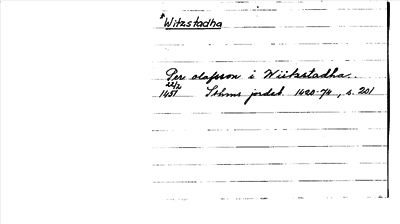 *Witzstadha
Per olafsson i Wiikstadha.
22/2
1457 Sthms jordeb. 1420-74, s. 201